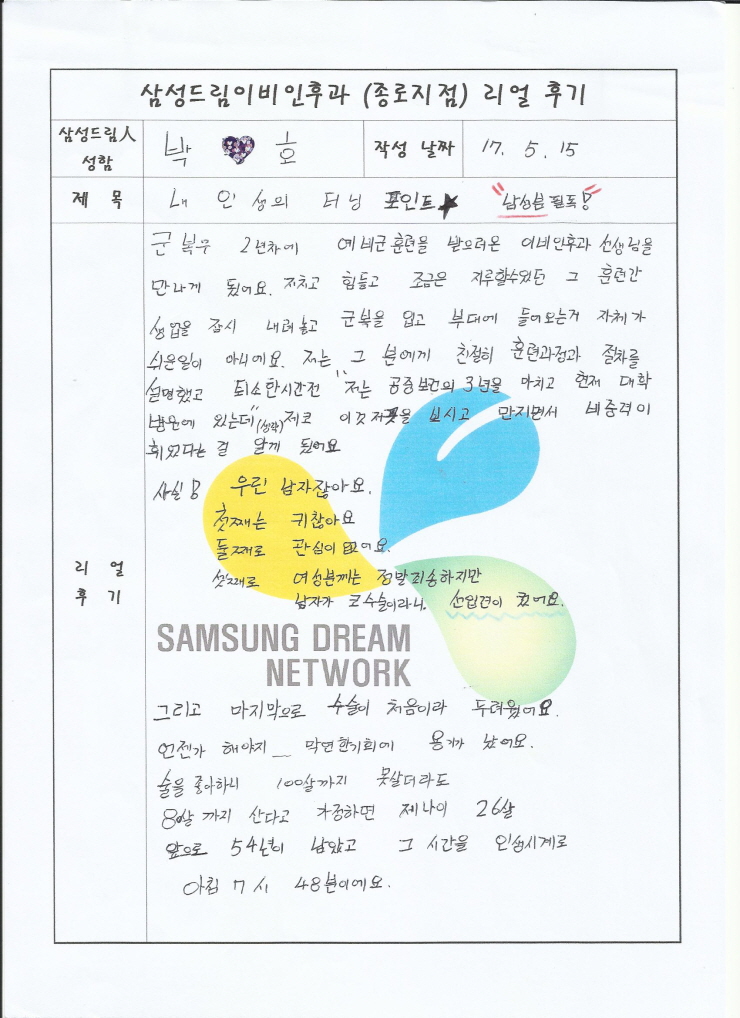 삼성드림이비인후과 (종로지점) 리얼 후기
삼성드림人 성함 박 호 작성 날짜 17. 5. 15
제 목 내 인생의 터닝 포인트★ "남성분 필독!"
군 복무 2년차에 예비군훈련을 받으러온 이비인후과 선생님을
만나게 됬어요. 지치고 힘들고 조금은 지루할수있던 그 훈련간
생업을 잠시 내려놓고 군복을 입고 부대에 들어오는거 자체가
쉬운일이 아니에요. 저는 그 분에게 친절히 훈련과정과 절차를
설명했고 퇴소한시간전 "저는 공중보건의 3년을 마치고 현재 대학
병원에 있는데"(생략) 제코 이곳저곳을 보시고 만지면서 비중격이
휘었다는 걸 알게 됬어요
사실! 우린 남자잖아요.
첫째는 귀찮아요
둘째로 관심이 없어요.
셋째로 여성분께는 정말죄송하지만
남자가 코수술이라니. 선입견이 컸어요.
리 얼
후 기
SAMSUNG DREAM
NETWORK
그리고 마지막으로 수술이 처음이라 두려웠어요.
언젠가 해야지 __ 막연한기회에 용기가 났어요.
술을 좋아하니 100살까지 못살더라도
80살 까지 산다고 가정하면 제나이 26살
앞으로 54년이 남았고 그 시간을 인생시계로
아침 7시 48분이에요.